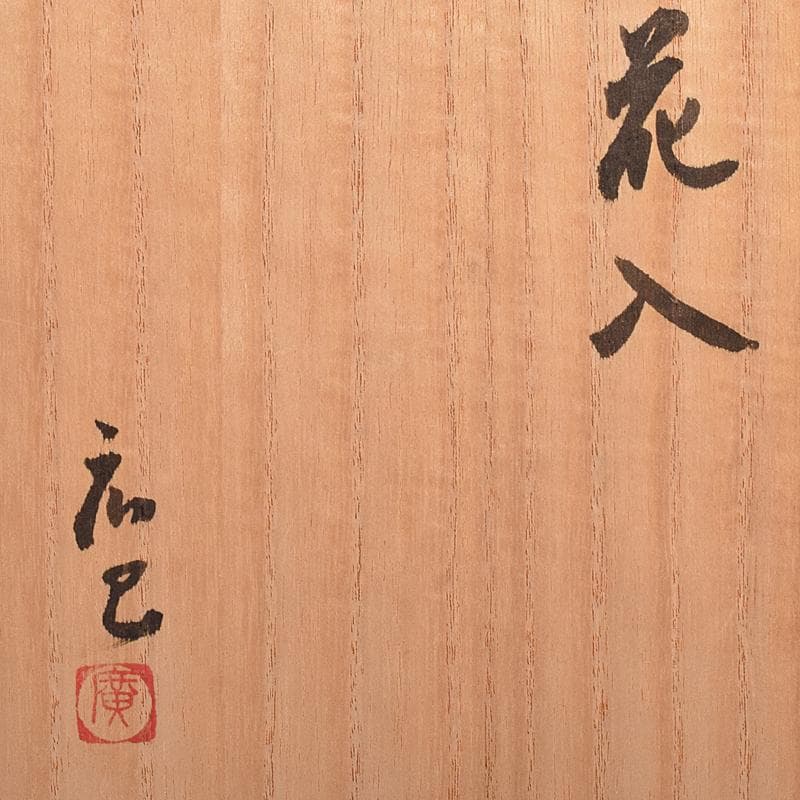 花入
広巳
廣